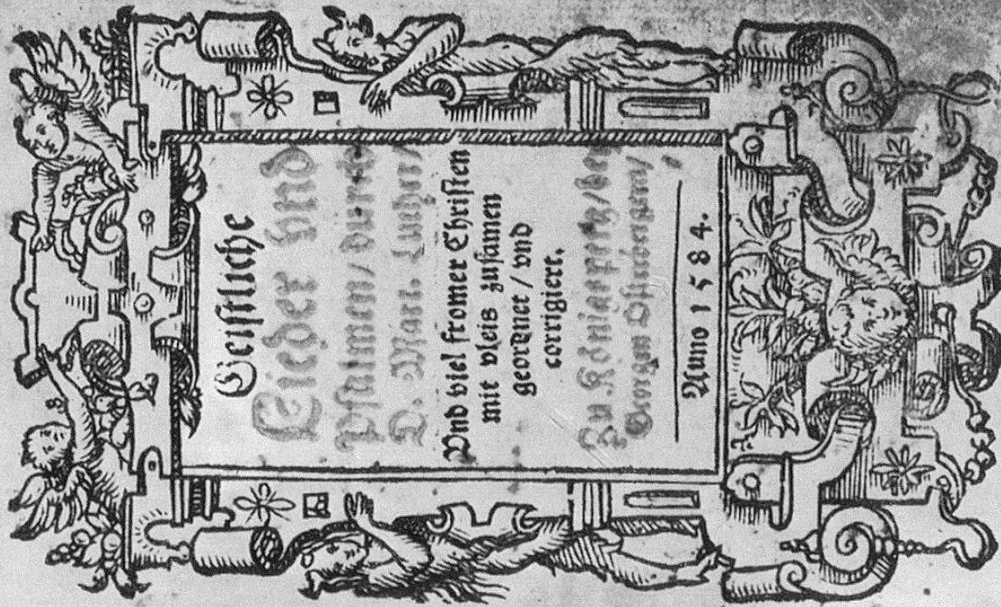 Geistliche
Lieder vnd
Psalmen / durch
D. Mart. Luther /
Vnd viel fromer Christen
mit vleis zusamen
geordnet / vnd
corrigiert.
Zu Königsperg / bey
Georgen Osterbergern /
Anno 1584.